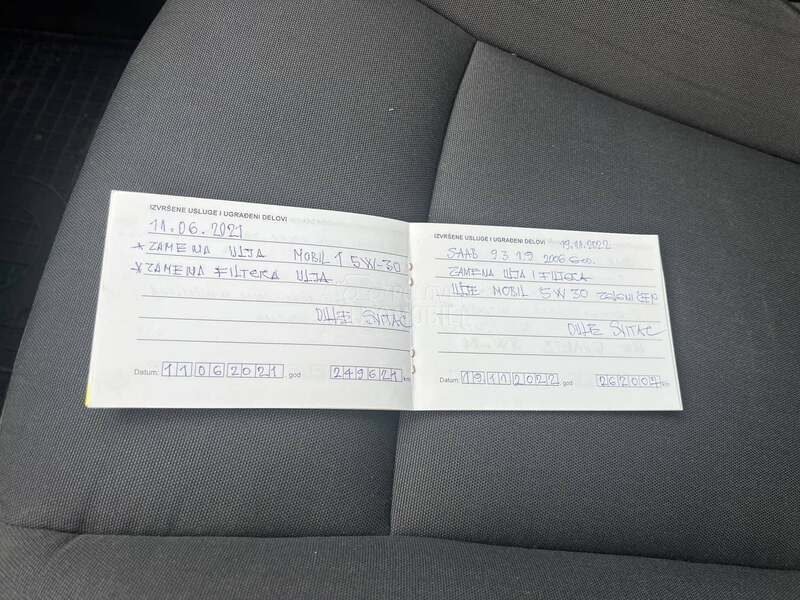 IZVRŠENE USLUGE I UGRAĐENI DELOVI
11.06.2021
*ZAMENA ULJA MOBIL 1 5W-30
*ZAMENA FILTERA ULJA
DULE SVITAC
Datum: 11062021. god 249621 km
IZVRŠENE USLUGE I UGRAĐENI DELOVI 19.11.2022
SAAB 93 1.9 2006 GOD.
ZAMENA ULJA I FILTERA
ULJE MOBIL 5W30 ZELENI ČEP
DULE SVITAC
Datum: 19112022. god 262007 km